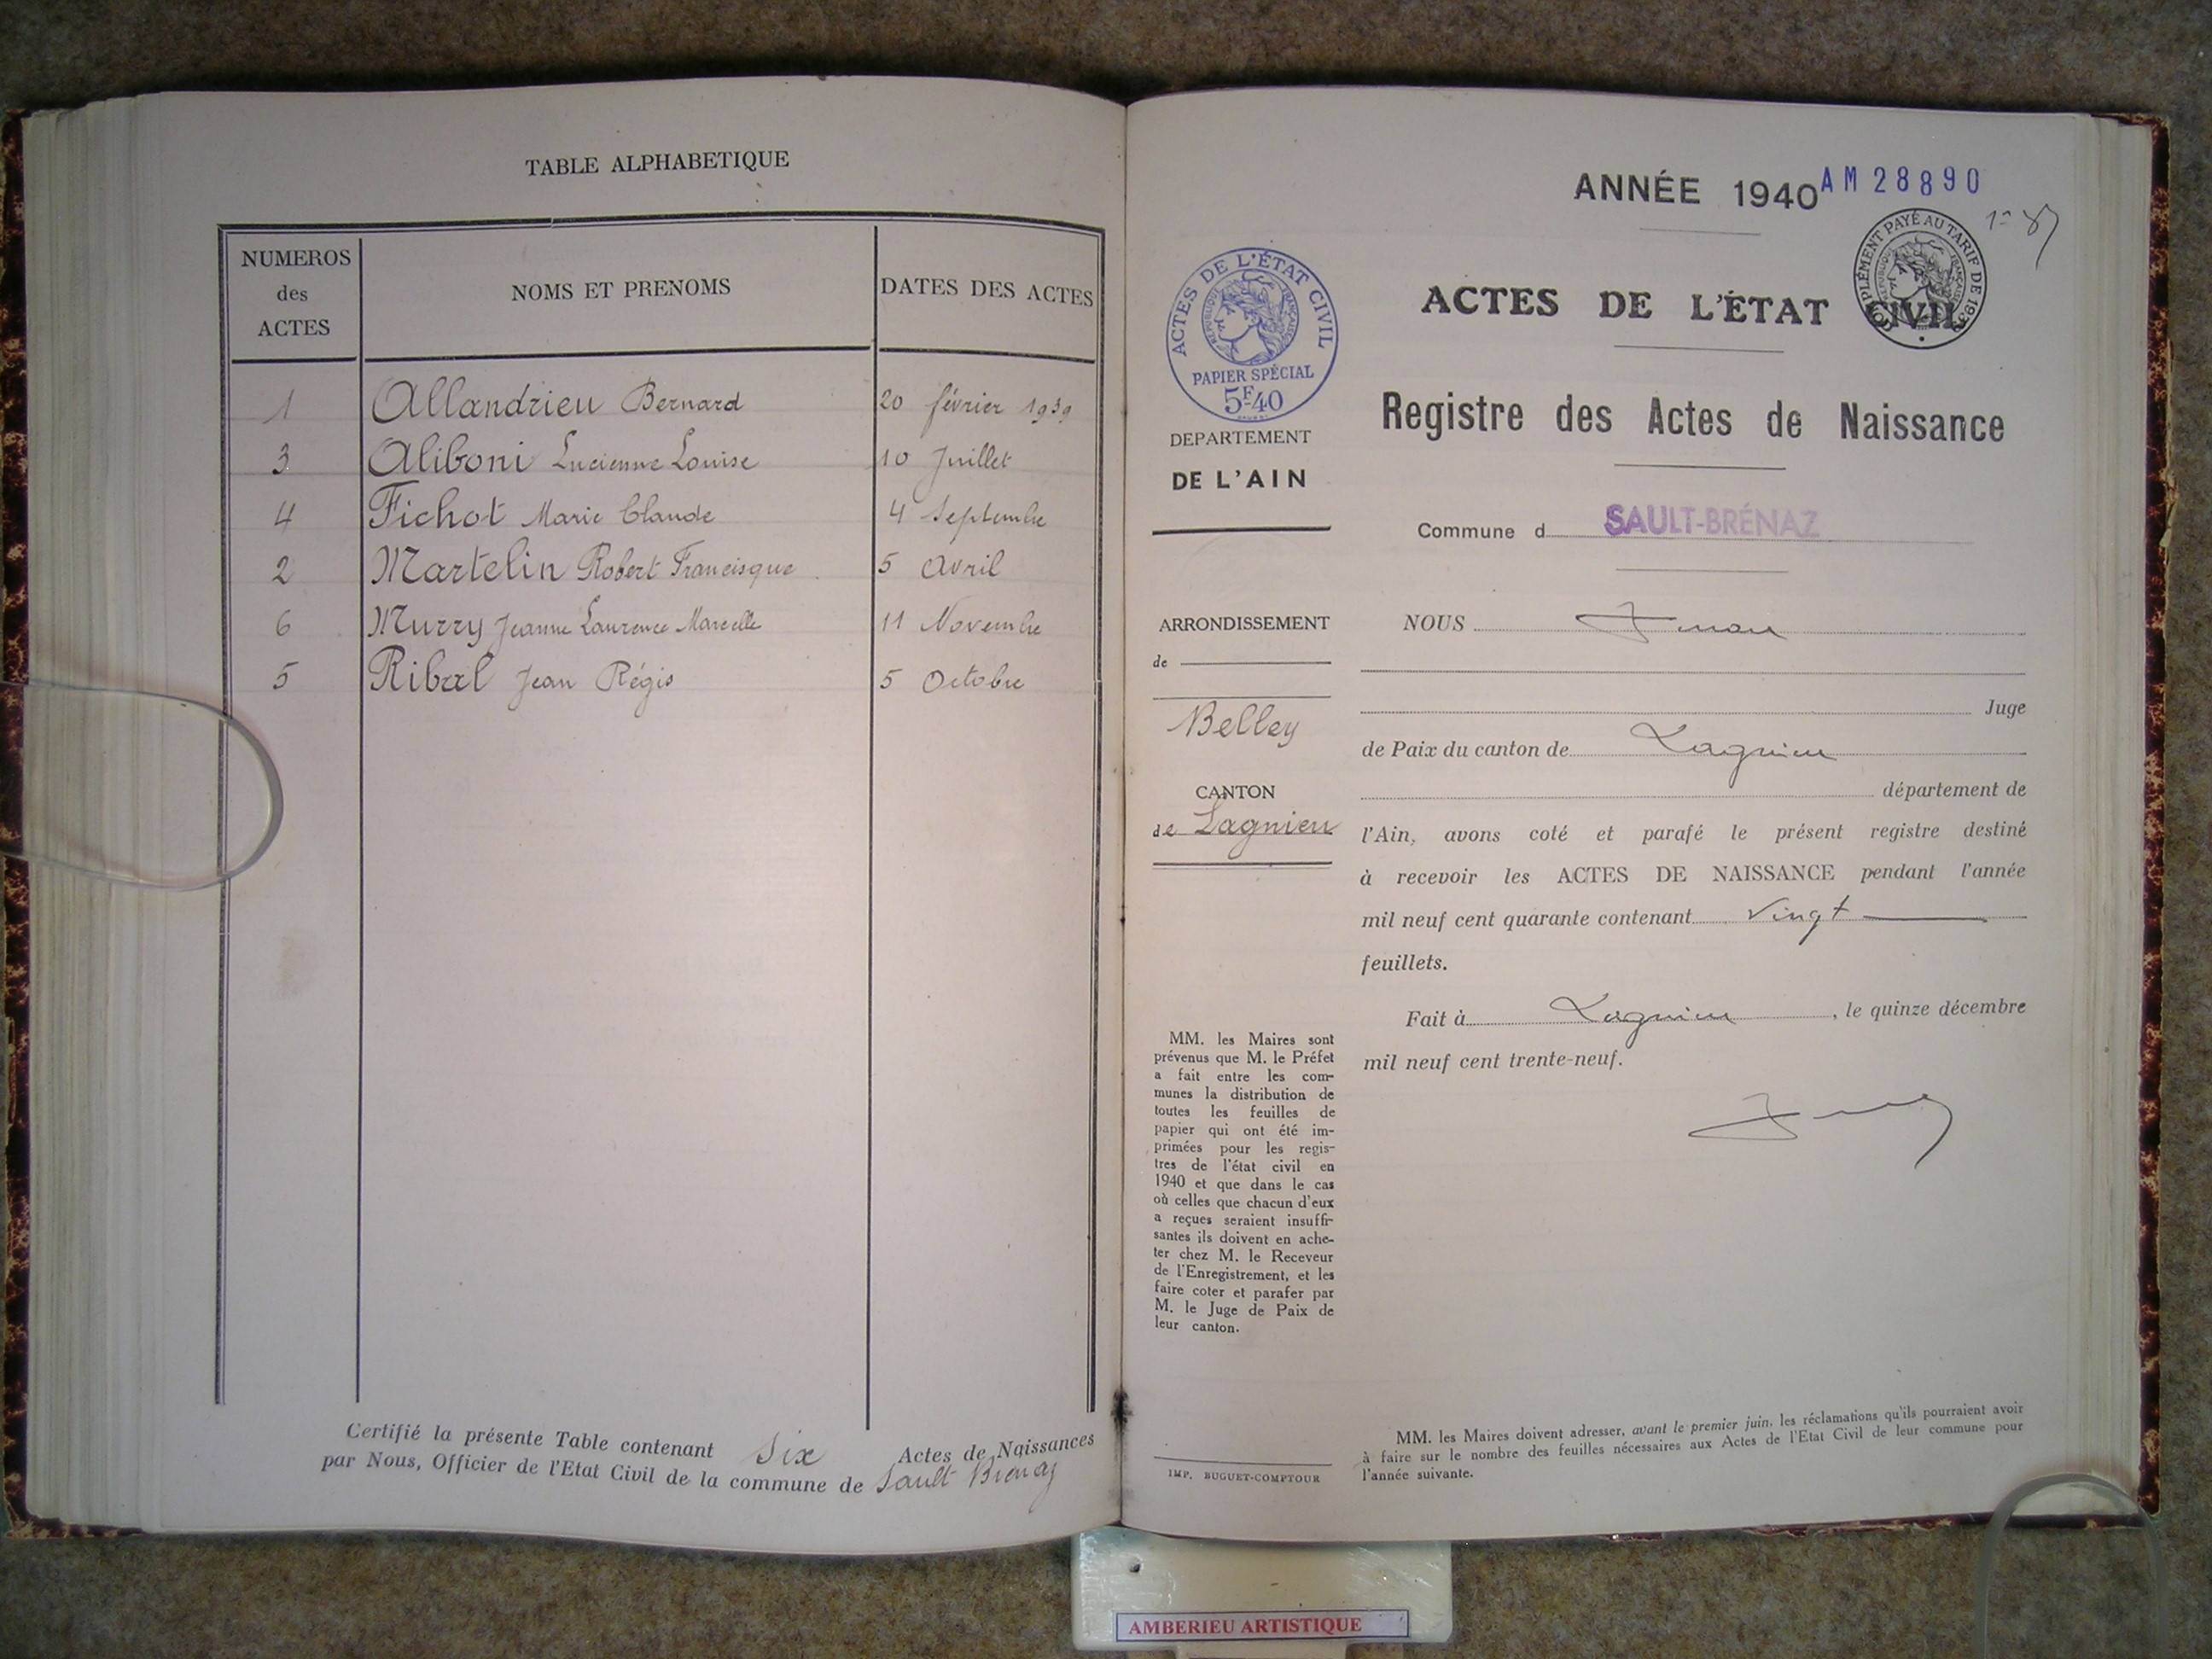 TABLE ALPHABETIQUE
NUMEROS
des
ACTES
NOMS ET PRENOMS
DATES DES ACTES
1 Allandrieu Bernard 20 février 1939
3 Aliboni Lucienne Louise 10 Juillet
4 Fichot Marie Claude 4 Septembre
2 Martelin Robert Francisque 5 Avril
6 Murry Jeanne Laurence Marcelle 11 Novembre
5 Jean Régis 5 Octobre
Certifié la présente Table contenant Six Actes de Naissances
par Nous, Officier de l'Etat Civil de la commune de Sault Brénaz
ANNÉE 1940
AM 28890
COMPLÉMENT PAYÉ AU TARIF DE 193
RÉPUBLIQUE FRANÇAISE
ACTES DE L'ÉTAT CIVIL
Registre des Actes de Naissance
Commune d SAULT-BRÉNAZ
ACTES DE L'ÉTAT CIVIL
RÉPUBLIQUE FRANÇAISE
PAPIER SPÉCIAL
5F40
DEPARTEMENT
DE L'AIN
ARRONDISSEMENT
de
Belley
CANTON
de Lagnieu
MM. les Maires sont
prévenus que M. le Préfet
a fait entre les com-
munes la distribution de
toutes les feuilles de
papier qui ont été im-
primées pour les regis-
tres de l'état civil en
1940 et que dans le cas
où celles que chacun d'eux
a reçues seraient insuffi-
santes ils doivent en ache-
ter chez M. le Receveur
de l'Enregistrement, et les
faire coter et parafer par
M. le Juge de Paix de
leur canton.
IMP. BUGUET-COMPTOUR
NOUS
Juge
de Paix du canton de Lagnieu
département de
l'Ain, avons coté et parafé le présent registre destiné
à recevoir les ACTES DE NAISSANCE pendant l'année
mil neuf cent quarante contenant Vingt
feuillets.
Fait à Lagnieu, le quinze décembre
mil neuf cent trente-neuf.
MM. les Maires doivent adresser, avant le premier juin, les réclamations qu'ils pourraient avoir
à faire sur le nombre des feuilles nécessaires aux Actes de l'Etat Civil de leur commune pour
l'année suivante.
AMBERIEU ARTISTIQUE